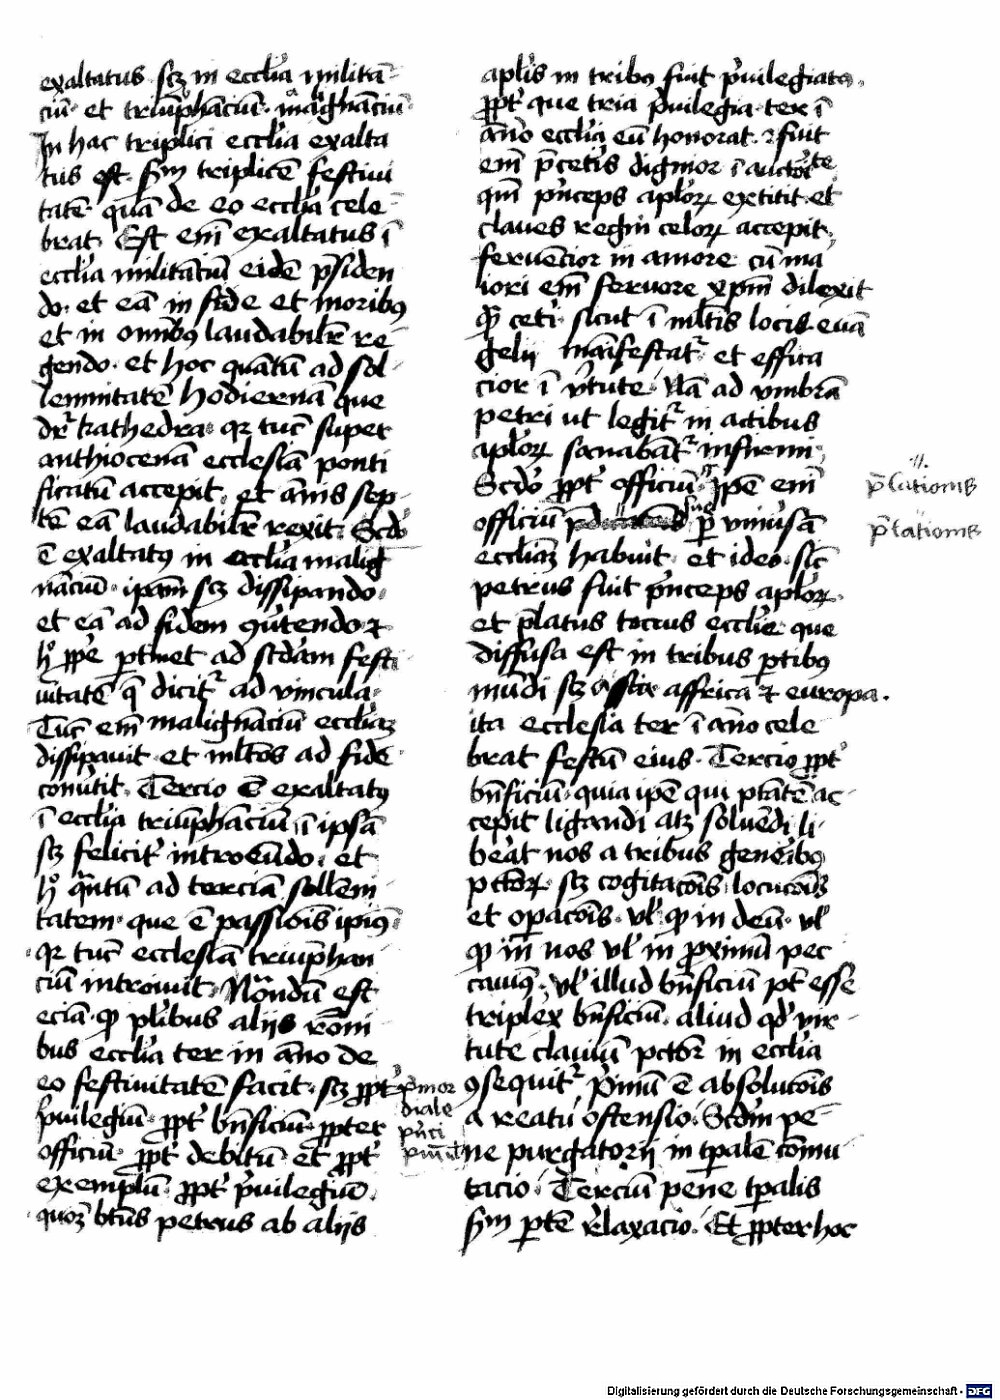 exaltatus scꝫ in eccl̄ia militā-
ciū et triūphāciū maligⁿāciū
In hac triplici eccl̄ia exalta
tus est s̄m triplicē festiui
tatē quā de eo eccl̄ia cele-
brat Est em̄ exaltatus ī
eccl̄ia militāciū eidē p̄siden
do et eā in fide et moribꝰ
et in om̄ibꝰ laudabilr̄ re-
gendo et hoc quātū ad sol-
lemnitatē hodiernā que
dr̄ kathedra qr tuc̄ super
anthiocenā ecclesiā ponti
ficatū accepit et ānis sep-
tē eā laudabilr̄ rexit Scd̄o
ē exaltatꝰ in eccl̄ia malig
nāciū ip̄am scꝫ dissipando
et eā ad fidem ꝯūtendo ⁊
hͦ p̄p̄e ꝑtinet ad scd̄am festi
uitatē q̄ dicit᷑ ad vincula
Tūc em̄ malignāciū eccl̄iaꝫ
dissipauit et ml̄tos ad fidē
conūtit Tercio ē exaltatꝰ
ī eccl̄ia triūphāciū ī ipsā
scꝫ felicit᷑ introeūdo et
hͦ q̄ntū ad terciā sollēni
tatem que ē passiōis ipiꝰ
qr tūc ecclesiā triūphan
ciū introiuit Notandū est
eciā ꝙ pl̄ibus alijs rōni
bus eccl̄ia ter in āno de
eo festiuitatē facit scꝫ ꝓpt᷑
p̄uilegiū ꝓpt᷑ bn̄ficiū ꝓpter
officiū ꝓpt᷑ debitū et ꝓpt᷑
exemplū ꝓpt᷑ p̄uilegiū
quoꝫ btūs petrus ab alijs
p̄mor
diale
apl̄is in tribꝰ fuit p̄uilegiatꝰ
ꝓpt᷑ que tria p̄uilegia ter ī
āno eccl̄ia eū honorat ⁊ fuit
em̄ p̄ ceteris dignior ī auctōte
qm̄ p̄nceps apl̄oꝝ extitit et
claues regni celoꝝ accepit
feruēcior in amore cū ma
iori em̄ feruore xp̄m dilexit
q̄ȝ ceti sicut ī ml̄tis locis euā
gelij māifestat᷑ et effica
cior ī v̄tute Nā ad vmbrā
petri ut legit᷑ in actibus
apl̄oꝝ sanabāt᷑ infirmi
Scd̄o ꝓpt᷑ officiū Ip̄e em̄
officiū sue ꝑ vniūsā
eccl̄iaꝫ habuit et ideo sic̄
petrus fuit p̄nceps apl̄oꝝ
et p̄latus tocius eccl̄ie que
diffusa est in tribus ꝑtibꝰ
mūdi scꝫ asia affrica ⁊ europa
ita ecclesia ter ī āno cele
brat festū eius Tercio ꝓpt᷑
bn̄ficiū quia ip̄e qui ptātē ac-
cepit ligandi atꝫ soluēdi li-
berat nos a tribus generibꝰ
pctōꝝ scꝫ cogitacōis locucōis
et opacōis vl̄ ꝙ in deū vl̄
ꝙ in nos vl̄ in proximū pec
cauimꝰ vl̄ illud bn̄ficiū pt̄ esse
triplex bn̄ficiū aliud qd̄ vir-
tute clauiū pctōr in eccl̄ia
ꝯsequit᷑ P̄imū ē absolucōis
a reatu ostensio Scd̄m pe-
ne purgatorij in tpalē cōmu
tacio Terciū pene tpalis
s̄m ꝑtē relaxacio Et ꝓpter hoc
p̄lationis
Digitalisierung gefördert durch die Deutsche Forschungsgemeinschaft - DFG